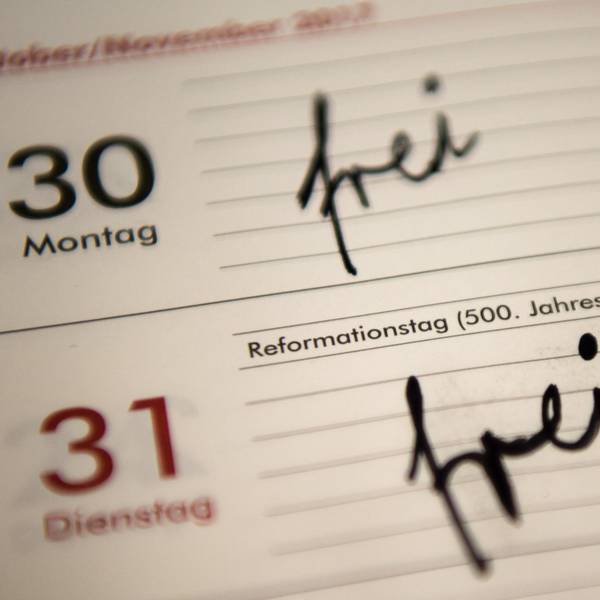 October/November 2017
30
Montag
frei
Reformationstag (500. Jahres
31
Dienstag
frei